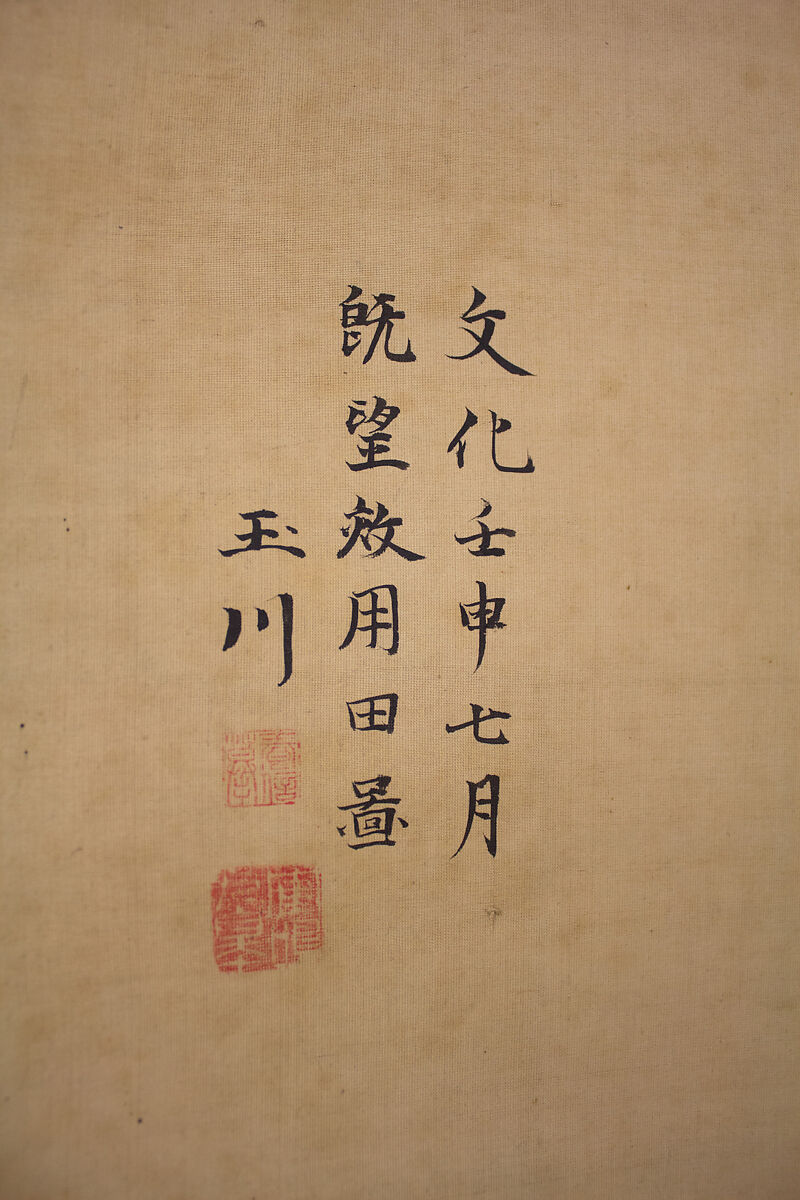 文化壬申七月
既望效用田啚
玉川